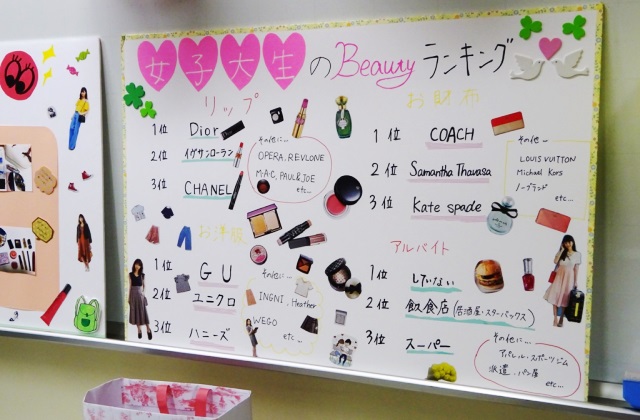 女子大生のBeautyランキング
リップ
1位 Dior
2位 イヴサンローラン
3位 CHANEL
その他に…
OPERA, REVLONE
M・A・C, PAUL&JOE
etc…
お財布
1位 COACH
2位 Samantha Thavasa
3位 Kate spade
その他に…
LOUIS VUITTON
Michael Kors
ノーブランド
etc…
お洋服
1位 GU
2位 ユニクロ
3位 ハニーズ
その他に…
INGNI, Heather
WEGO
etc…
アルバイト
1位 していない
2位 飲食店(居酒屋・スターバックス)
3位 スーパー
その他に…
アパレル・スポーツジム
派遣、パン屋
etc…